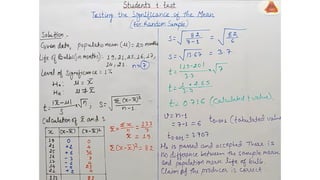 Students t test
Testing the Significance of the Mean
(for Random Sample)
Solution -
Given data, population mean (μ) = 20 months
Life of Bulbs (in months) 19, 21, 25, 16, 17,
14, 21 n = 7
Level of Significance = 1%
H₀: μ = x̄
H₁: μ ≠ x̄
t = |x̄ - μ| / S √n , S = √Σ(x-x̄)² / n-1
Calculation of x̄ and S
x (x-x̄) (x-x̄)²
19 0 0
21 +2 4
25 +6 36
16 -3 9
17 -2 4
14 25
21 4
133 82
x̄ = Σx / n = 133 / 7
x̄ = 19
Σ(x-x̄)² = 82
S = √82 / 7-1 = √82 / 6
S = √13.67 = 3.7
t = |19-20| / 3.7 √7
t =
t = 0.716 (Calculated t value)
ν = n-1
= 7-1 = 6
t₀.₀₁ = 3.707
H₀ is passed and accepted There is
no difference between the sample mean
and population mean life of bulbs
Claim of the producer is correct